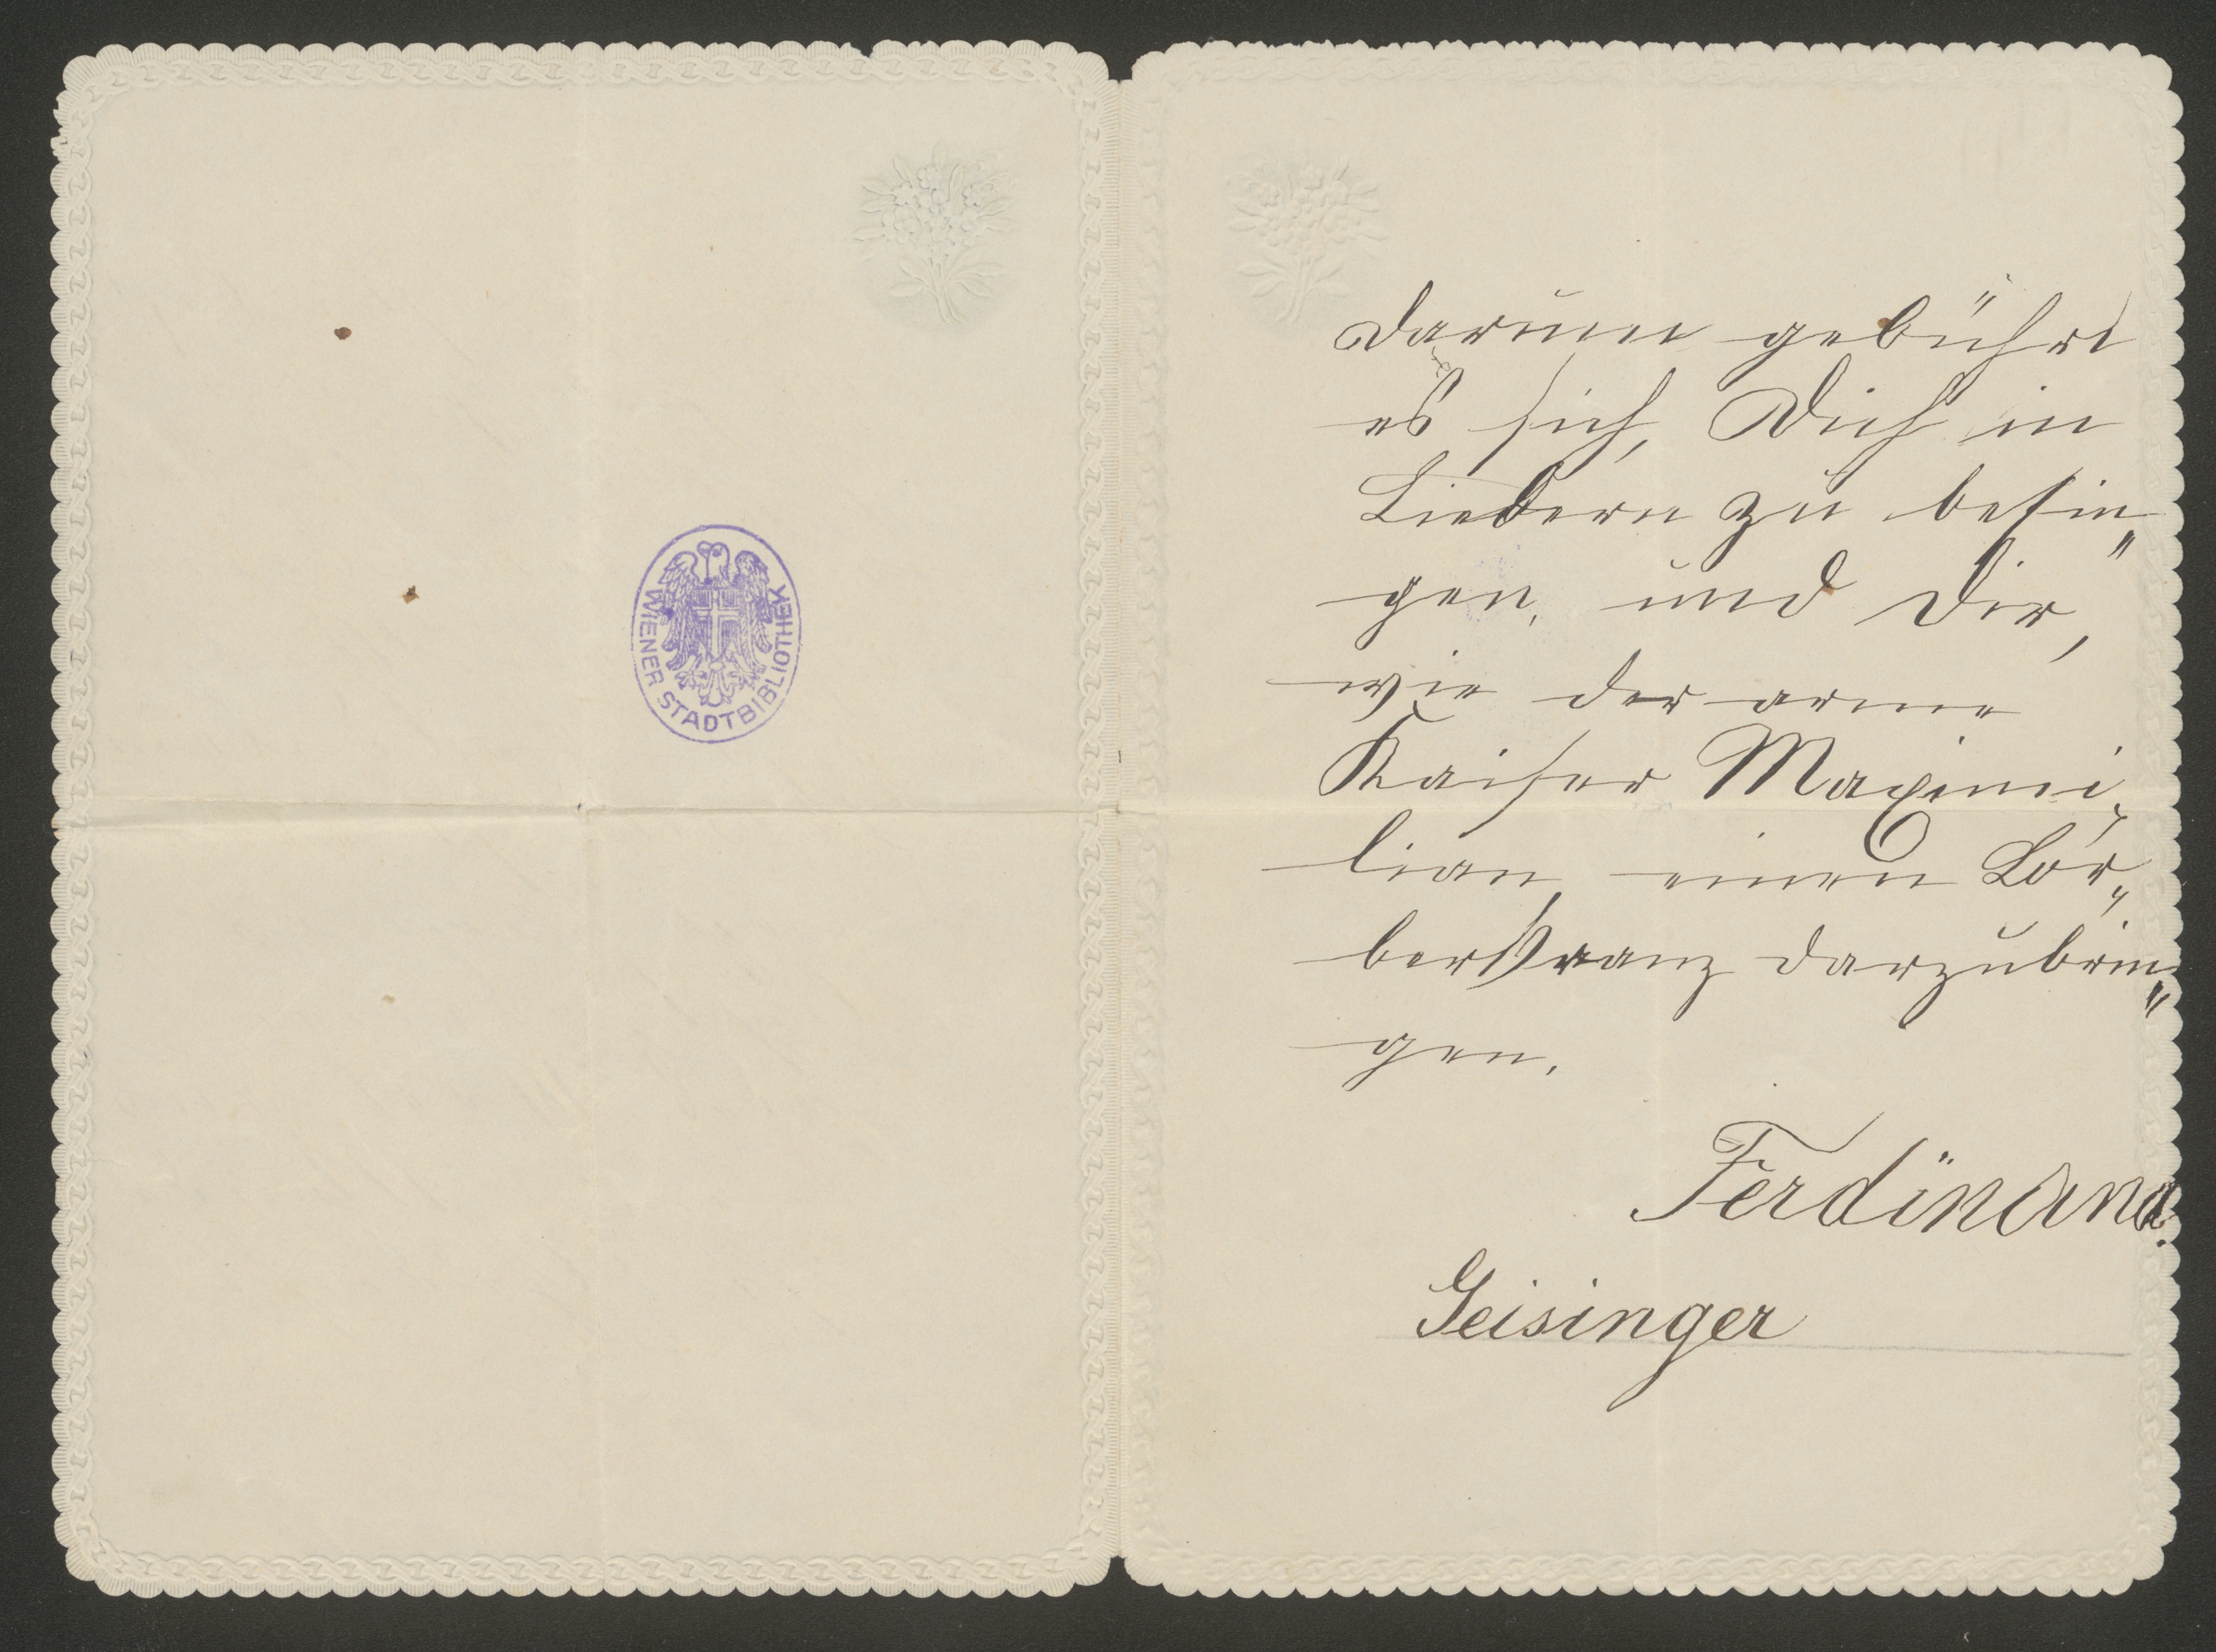 WIENER STADTBIBLIOTHEK
Darum gebührt
es sich, Dich in
Liedern zu besin„
gen, und Dir,
wie der arme
Kaiser Maximi„
lian einen Lor„
berkranz darzubrin„
gen.
Ferdinand
Geisinger